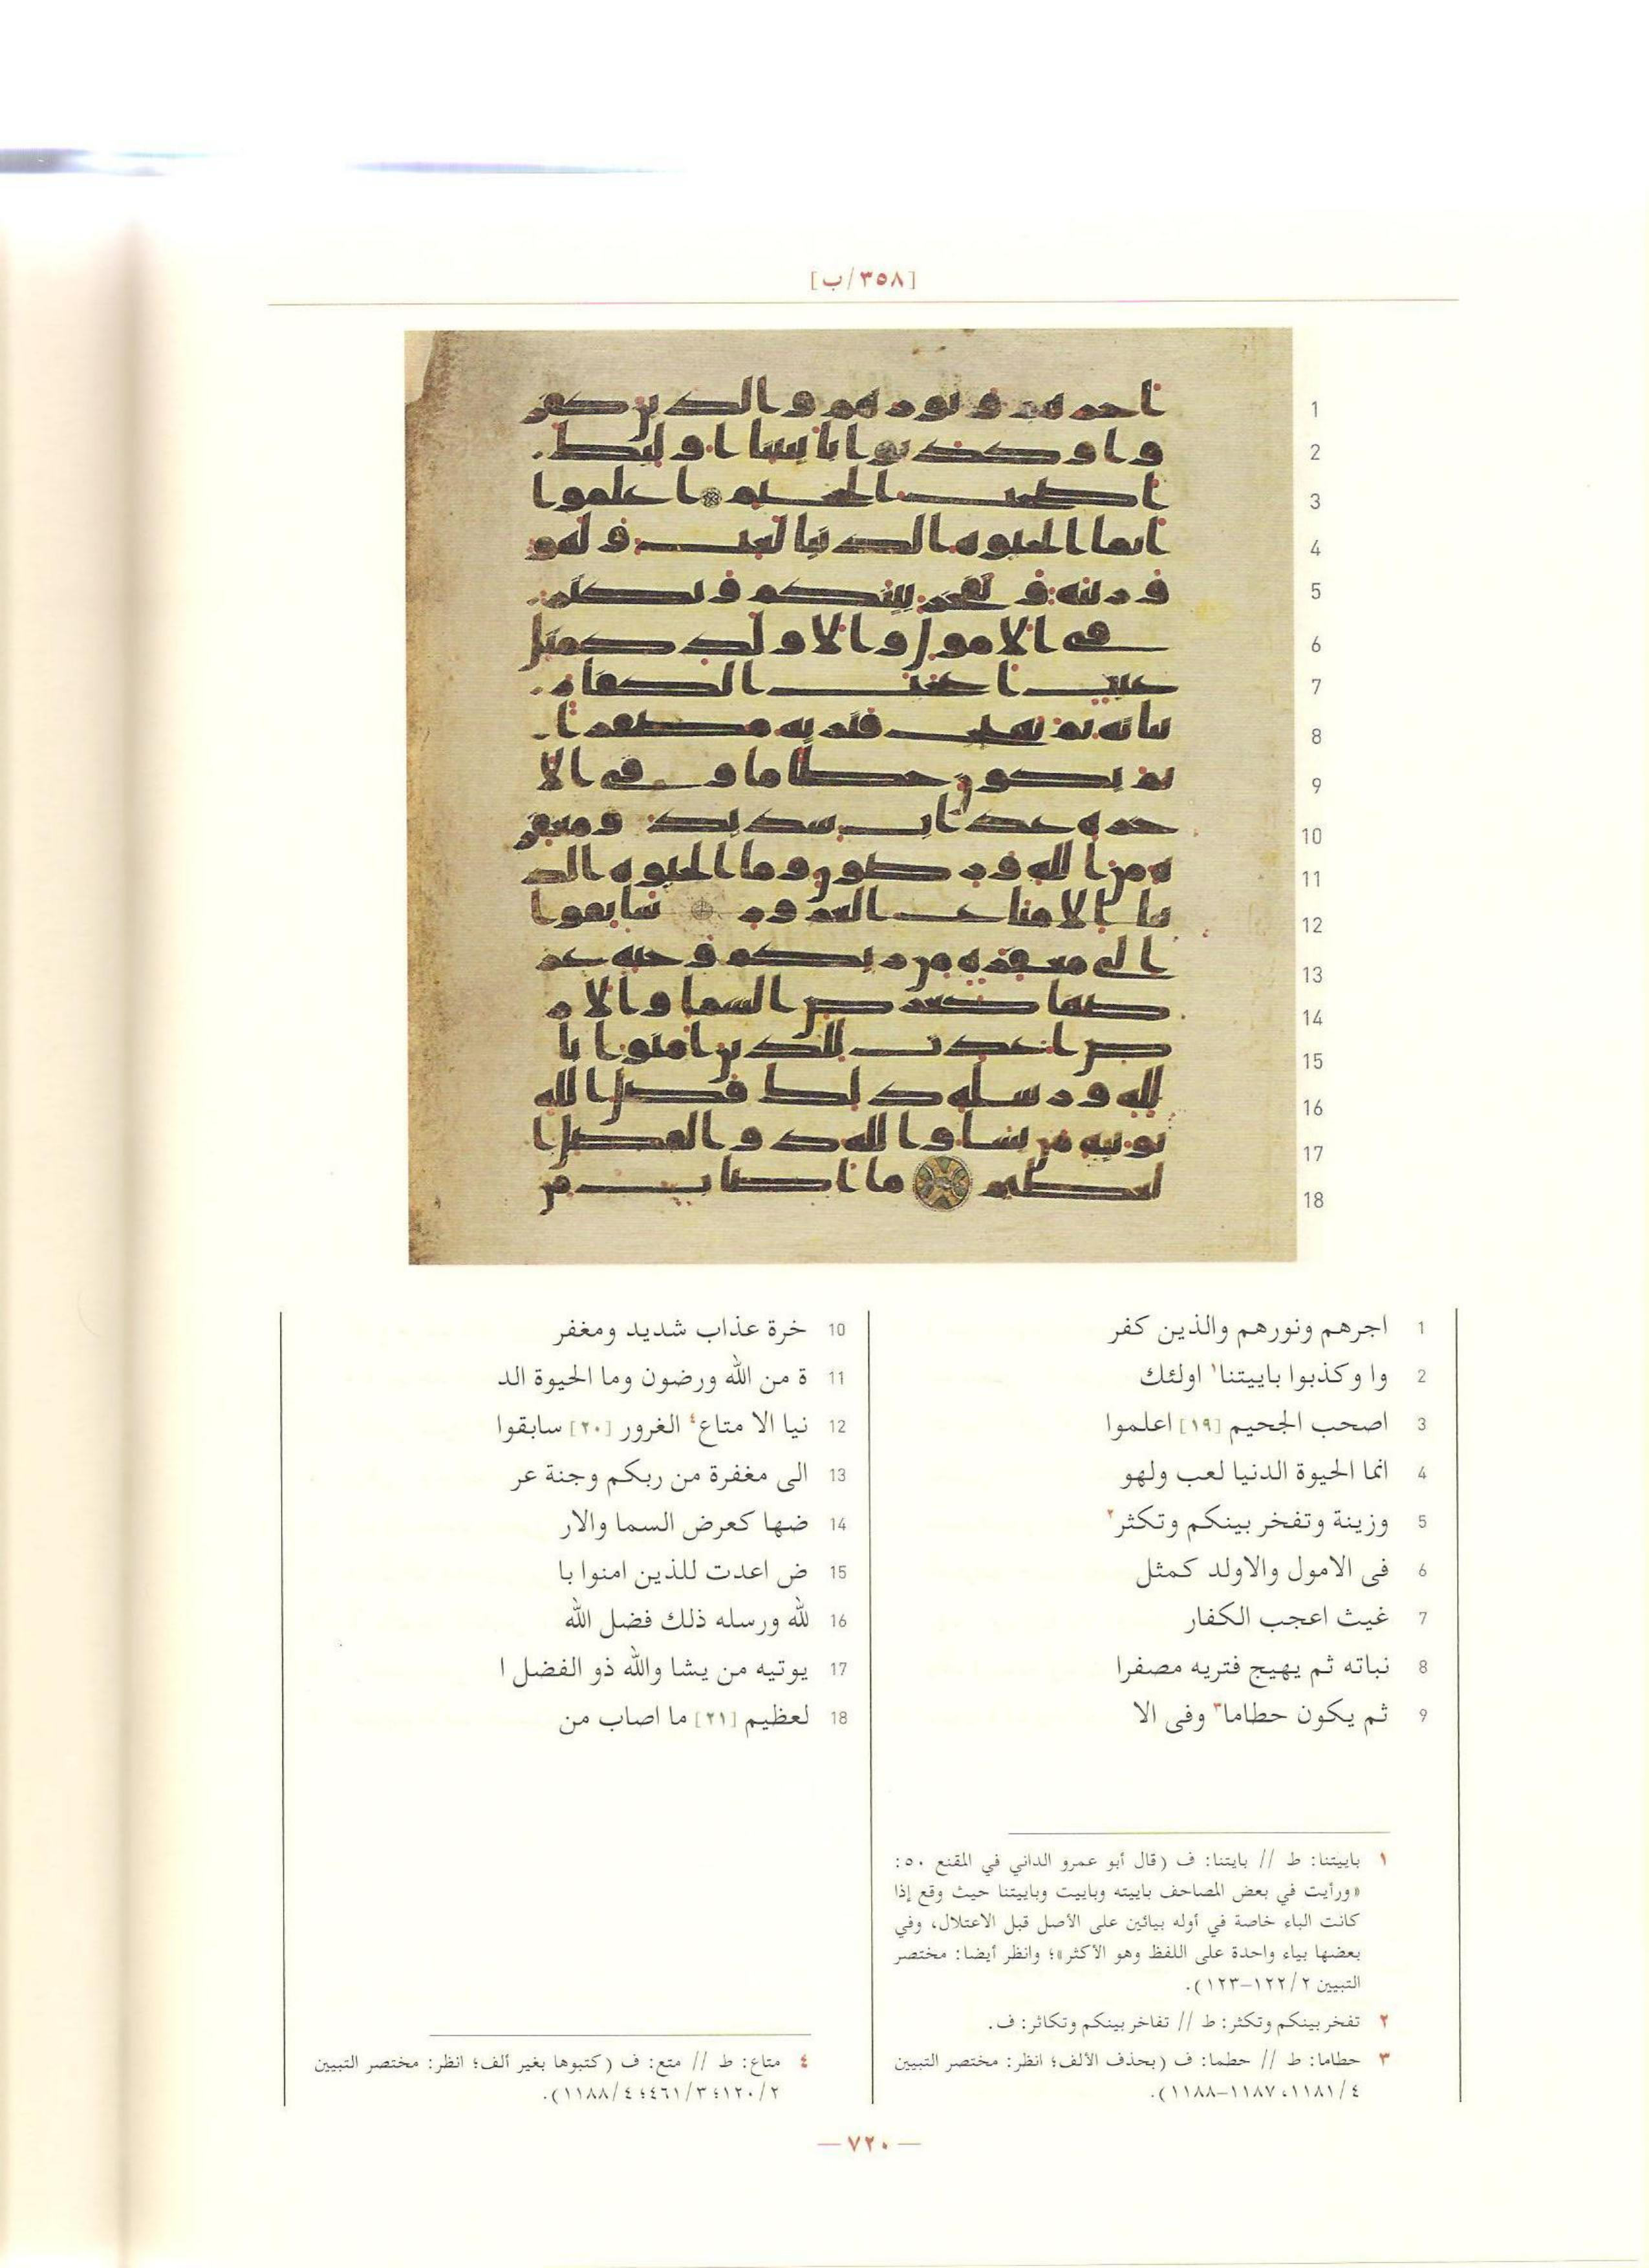 [٣٥٨/ب]
1 اجرهم ونورهم والذين كفر
2 وا وكذبوا باييتنا١ اولئك
3 اصحب الجحيم [١٩] اعلموا
4 انما الحيوة الدنيا لعب ولهو
5 وزينة وتفخر بينكم وتكثر٢
6 فى الامول والاولد كمثل
7 غيث اعجب الكفار
8 نباته ثم يهيج فتريه مصفرا
9 ثم يكون حطاما٣ وفى الا
10 خرة عذاب شديد ومغفر
11 ة من الله ورضون وما الحيوة الد
12 نيا الا متاع٤ الغرور [٢٠] سابقوا
13 الى مغفرة من ربكم وجنة عر
14 ضها كعرض السما والار
15 ض اعدت للذين امنوا با
16 لله ورسله ذلك فضل الله
17 يوتيه من يشا والله ذو الفضل ا
18 لعظيم [٢١] ما اصاب من
١ باييتنا: ط // بايتنا: ف (قال أبو عمرو الداني في المقنع ٥٠:
«ورأيت في بعض المصاحف باييته وباييت وباييتنا حيث وقع إذا
كانت الباء خاصة في أوله بيائين على الأصل قبل الاعتلال، وفي
بعضها بياء واحدة على اللفظ وهو الأكثر»؛ وانظر أيضا: مختصر
التبيين ١٢٢/٢–١٢٣).
٢ تفخر بينكم وتكثر: ط // تفاخر بينكم وتكاثر: ف.
٣ حطاما: ط // حطما: ف (بحذف الألف؛ انظر: مختصر التبيين
١١٨١/٤، ١١٨٧–١١٨٨).
٤ متاع: ط // متع: ف (كتبوها بغير ألف؛ انظر: مختصر التبيين
١٢٠/٢؛ ٤٦١/٣؛ ١١٨٨/٤).
— ٧٢٠ —